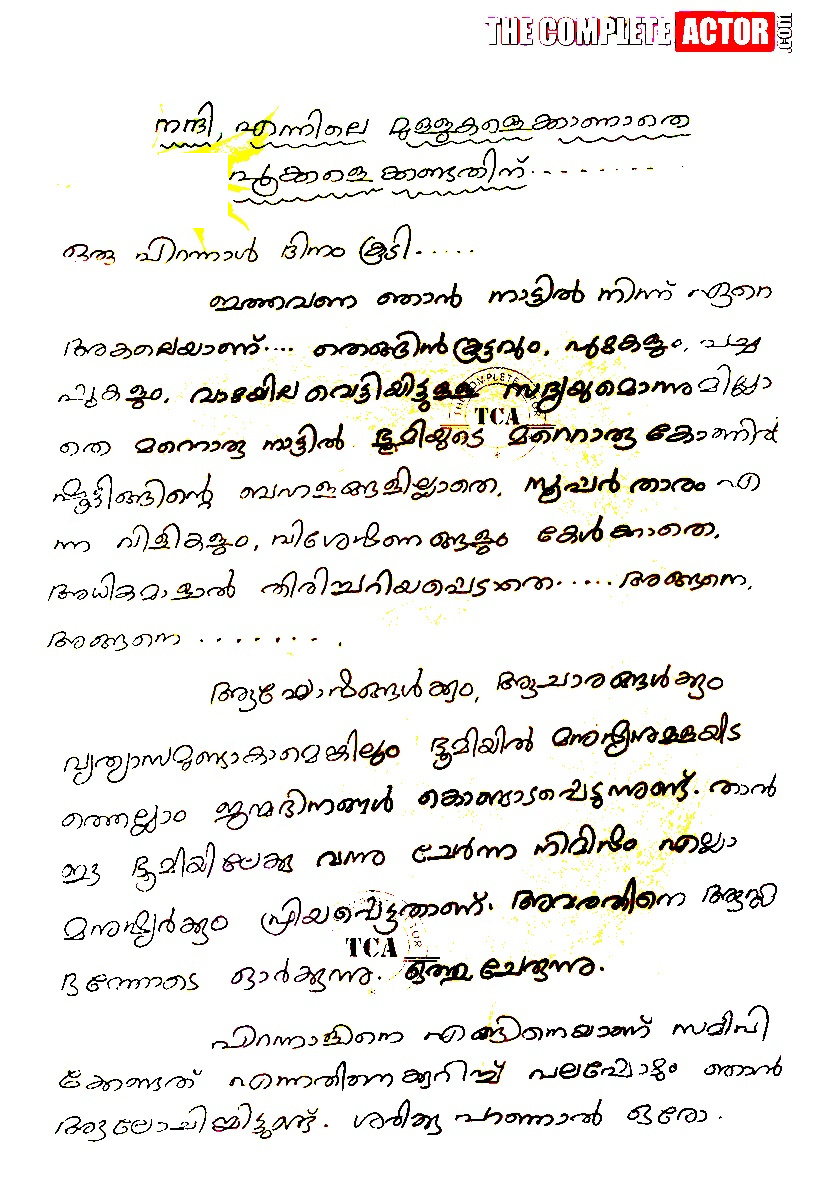 THE COMPLETE ACTOR
നന്ദി, എന്നിലെ മുള്ളുകളെക്കാണാതെ
പൂക്കളെ കണ്ടതിന്.........
ഒരു പിറന്നാൾ ദിനം കൂടി.....
ഇത്തവണ ഞാൻ നാട്ടിൽ നിന്ന് ഏറെ
അകലെയാണ്.... തെങ്ങിൻ കൂട്ടവും, പുഴകളും, പച്ച
പ്പുകളും, വാഴയില വെട്ടിയിട്ടുള്ള സദ്യയുമൊന്നുമില്ലാ
തെ മറ്റൊരു നാട്ടിൽ ഭൂമിയുടെ മറ്റൊരു കോണിൽ
ഷൂട്ടിങ്ങിന്റെ ബഹളങ്ങളില്ലാതെ, സൂപ്പർ താരം എ
ന്ന വിളികളും, വിശേഷണങ്ങളും കേൾക്കാതെ,
അധികമാളാൽ തിരിച്ചറിയപ്പെടാതെ..... അങ്ങനെ,
അങ്ങനെ ........
ആഘോഷങ്ങൾക്കും, ആചാരങ്ങൾക്കും
വ്യത്യാസമുണ്ടാകാമെങ്കിലും ഭൂമിയിൽ മനുഷ്യനുള്ളയിട
ത്തെല്ലാം ജന്മദിനങ്ങൾ കൊണ്ടാടപ്പെടുന്നുണ്ട്. താൻ
ഈ ഭൂമിയിലേക്കു വന്നു ചേർന്ന നിമിഷം എല്ലാ
മനുഷ്യർക്കും പ്രിയപ്പെട്ടതാണ്. അവരതിനെ ആന
ന്ദത്തോടെ ഓർക്കുന്നു. ഒത്തു ചേരുന്നു.
പിറന്നാളിനെ എങ്ങിനെയാണ് സമീപി
ക്കേണ്ടത് എന്നതിനെക്കുറിച്ച് പലപ്പോഴും ഞാൻ
ആലോചിച്ചിട്ടുണ്ട്. ശരിക്കു പറഞ്ഞാൽ ഓരോ
TCA
TCA